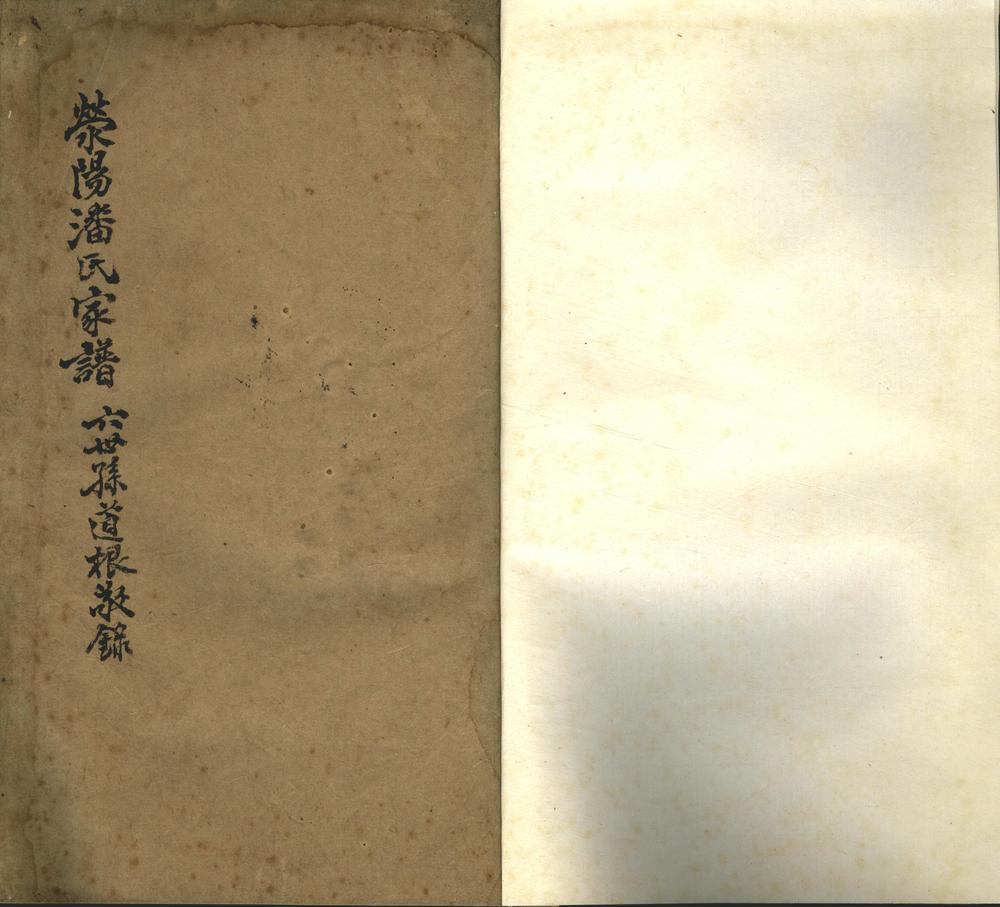 滎陽潘氏家譜 六世孫道根敬錄